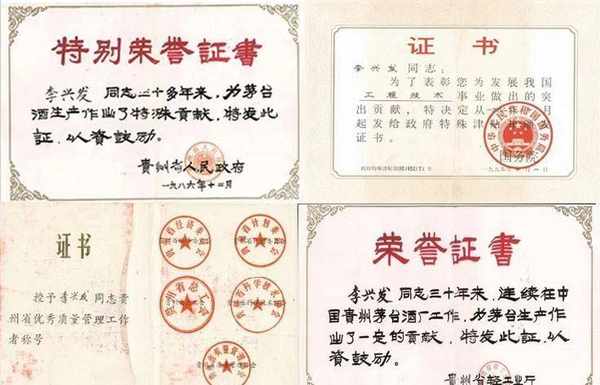 特别荣誉证書
李兴发 同志三十多年来，为茅台
酒生产作出了特殊贡献，特发此
证，以资鼓励。
贵州省人民政府
一九八六年十二月
证书
李兴发 同志：
为了表彰您为发展我国
工程技术 事业做出的突
出贡献，特决定从一九 月
起发给政府特殊津
证书。
国务院
证书
授予李兴发同志贵
州省优秀质量管理工作
者称号
荣誉証書
李兴发 同志三十年来，连续在中
国贵州茅台酒厂工作，为茅台生产作
出了一定的贡献，特发此证，以
资鼓励。
贵州省轻工业厅